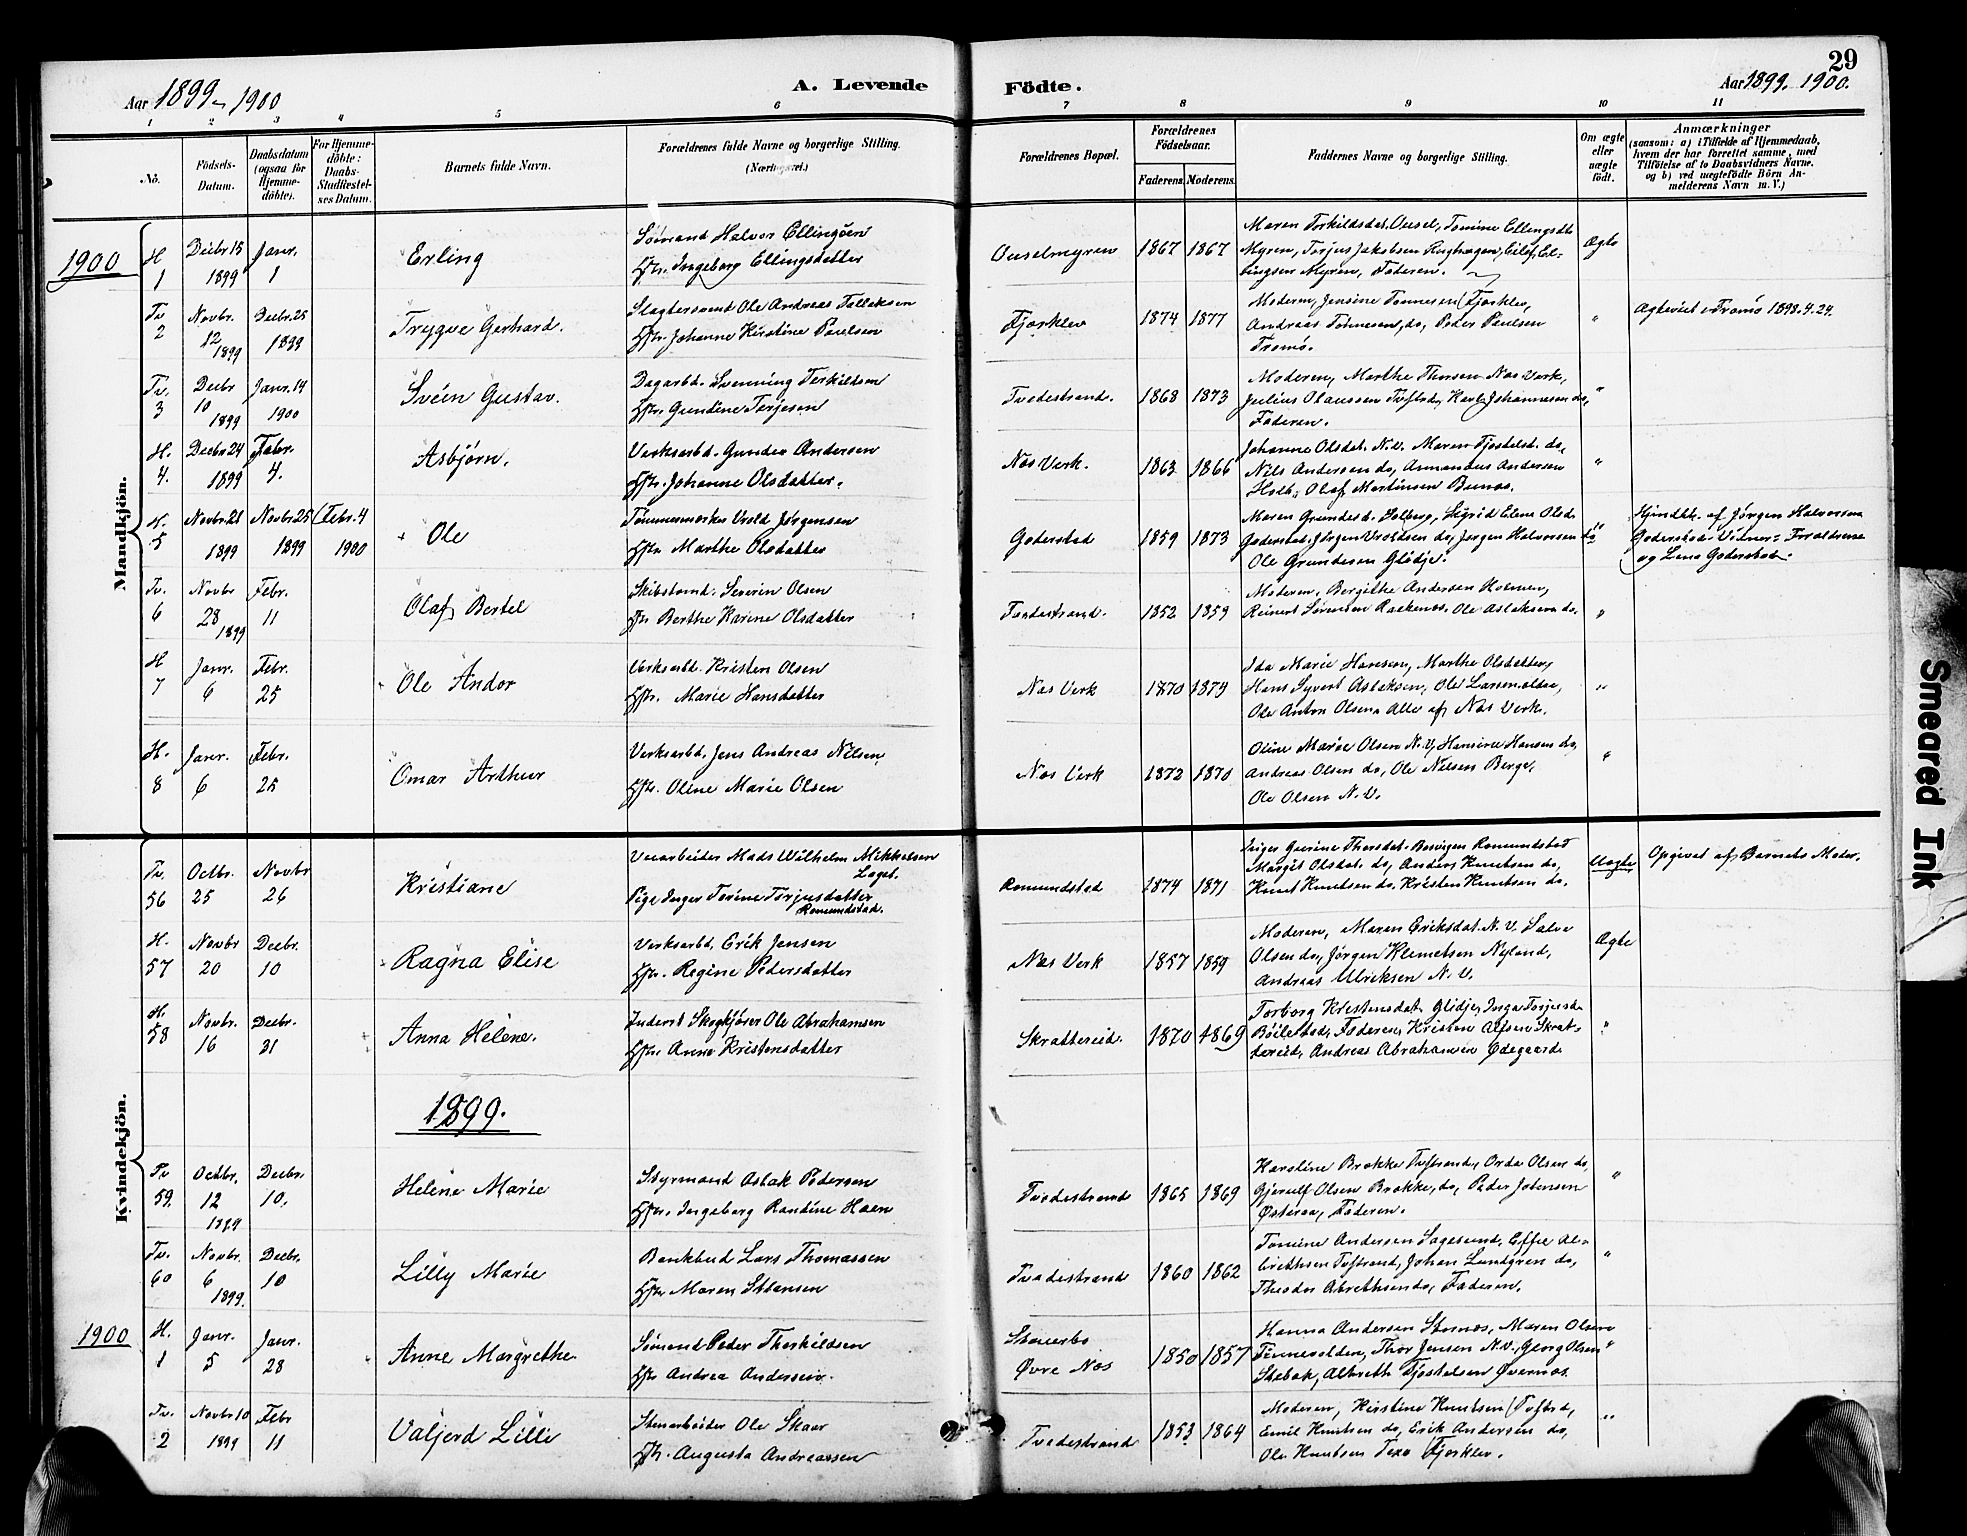 29
Aar 1899-1900
A. Levende
Födte.
Aar 1899. 1900.
1 2 3 4 5 6 7 8 9 10 11
No.
Födsels-Datum.
Daabsdatum (ogsaa for Hjemme-döbte).
For Hjemme-döbte: Daabs-Stadfæstel-ses Datum.
Barnets fulde Navn.
Forældrenes fulde Navne og borgerlige Stilling.
(Næringsvei.)
Forældrenes Bopæl.
Forældrenes Födselsaar.
Faderens. Moderens.
Faddernes Navne og borgerlige Stilling.
Om ægte eller uægte födt.
Anmærkninger
(saasom: a) i Tilfælde af Hjemmedaab,
hvem der har forrettet samme, med
Tilföielse af to Daabsvidners Navne.
og b) ved uægtefödte Börn An-
melderens Navn m. V.)
Mandkjön.
1900
H 1 Decbr 15 1899 Janr. 1 Erling
Sömand Halvor Ellingsen
Hstr. Ingeborg Ellingsdatter
Ouselmyren 1867 1867
Maren Torkildsdat. Ousel, Tomine Ellingsdt
Myren, Torjus Jakobsen Rughagen, Eilef El-
lingsen Myren, Faderen.
Ægte
Tv 2 Novbr. 12 1899 Decbr. 25 1899 Trygve Gerhard.
Slagtersvend Ole Andreas Tellaksen
Hstr. Johanne Kirstine Paulsen
Fjærklev 1874 1877
Moderen, Jensine Tønnesen Fjærklev,
Andreas Tønnesen, do, Peder Paulsen
Tromø.
" Ægteviet i Tromø 1898.4.24.
Tv. 3 Decbr 10 1899 Janr. 14 1900 Svein Gustav.
Dagarbd. Svenning Terkildsen
Hstr. Gundine Terjesen
Tvedestrand. 1868 1873
Moderen, Marthe Thorsen Næs Verk,
Julius Olaussen Tvstrd, Karl Johannesen do,
Faderen.
"
H. 4. Decbr 24 1899 Febr. 4. Asbjørn.
Verksarbd. Gunder Andersen
Hstr. Johanne Olsdatter.
Næs Verk. 1863 1866
Johanne Olsdat. N.V. Maren Tjostelsd. do,
Nils Andersen do, Armandus Andersen
Holt, Olaf Martinsen Bunæs.
"
H. 5 Novbr. 21 1899 Novbr. 25 1899 Febr. 4 1900 Ole
Tømmermerker Vrold Jørgensen
Hstr Marthe Olsdatter
Goderstad 1859 1873
Maren Gundersd. Solberg, Sigrid Elene Olsd.
Goderstad, Jørgen Vroldsen do, Jørgen Halvorsen do
Ole Gundersen Glidje.
"
Hjmdbt. af Jørgen Halvorsen
Goderstad. Vidner: Forældrene
og Lena Goderstad.
Tv. 6 Novbr 28 1899 Febr. 11 Olaf Bertel
Skibstømd. Severin Olsen
Hstr Berthe Karine Olsdatter
Tvedestrand. 1852 1859
Moderen, Bergithe Andersen Holmen,
Reinert Sørensen Rækenes, Ole Aslaksen do,
"
H 7 Janr. 6 Febr. 25 Ole Andor
Verksarbd. Kristen Olsen
Hstr. Marie Hansdatter
Næs Verk 1870 1873
Ida Marie Hansen, Marthe Olsdatter,
Hans Syvert Aslaksen, Ole
Ole Anton Olsen Alle af Næs Verk.
"
H. 8 Janr. 6 Febr. 25 Omar Arthur
Verksarbd, Jens Andreas Nilsen
Hstr. Oline Marie Olsen
Næs Verk 1872 1870
Oline Marie Olsen N.V, Hansine Hansen do,
Andreas Olsen do, Ole Nilsen Berge,
Ole Olsen N.V.
"
Kvindekjön.
Tv. 56 Octbr. 25 Novbr 26 Kristiane
Veiarbeider Mads Wilhelm Mikkelsen
Laget.
Pige Inger Torine Torjusdatter
Romundstad.
Romundstad 1874 1871
Inger Gurine Thorsdat. Romundstad
Margit Olsdat. do, Anders Knutsen do,
Knut Knutsen do, Kristen Knutsen do.
Uægte Opgivet af Barnets Moder.
H. 57 Novbr 20 Decbr. 10 Ragna Elise
Verksarbd, Erik Jensen
Hstr. Regine Pedersdatter
Næs Verk 1857 1859
Moderen, Maren Eriksdat. N.V. Salve
Olsen do, Jørgen Klemetsen Nyland,
Andreas Ulriksen N.V.
Ægte
H. 58 Novbr. 16 Decbr. 31 Anna Helene.
Inderst Skogkjører Ole Abrahamsen
Hstr. Anne Kristensdatter
Skrattereid. 1870 1869
Torborg Kristensdat. Glidje, Inga Torjusd.
Böilestad, Faderen, Kristen Olsen Skrat-
tereid, Andreas Abrahamsen Ødegaard
"
1899.
Tv 59. Octbr. 12 1899 Decbr. 10. Helene Marie
Styrmand Aslak Pedersen
Hstr. Ingeborg Randine Haen
Tvedestrand 1865 1869
Karoline Brække Tvstrand, Orda Olsen do,
Gjerulf Olsen Brække, do, Peder Jørensen
Østeraa, Faderen.
"
Tv. 60 Novbr. 6 1899. Decbr. 10 Lilly Marie
Bankbud Lars Thomassen
Hstr Maren Steensen
Tvedestrand 1860 1862
Tomine Andersen Sagesund, Effie Al-
brethsen Tvstrand, Johan Lundgren do,
Theodor Albrethsen do, Faderen.
"
1900
H. 1 Janr. 5 Janr. 28 Anne Margrethe.
Sömand Peder Therkildsen
Hstr Andrea Andersen.
Stauerbo
Øvre Næs 1850 1857
Hanna Andersen Stornæs, Maren Olsen
, Thor Jensen N.V., Georg Olsen
, Albreth Tjostelsen Øvernæs.
"
Tv. 2 Novbr 10 1899 Febr 11 Valjerd Lilli
Stenarbeider Ole Skaar
Hstr. Augusta Andreassen
Tvedestrand 1853 1864
Moderen, Kirstine Knutsen Tvstrd,
Emil Knutsen do, Erik Andersen do,
Ole Knutsen Texo Fjærklev.
"
Smeared Ink